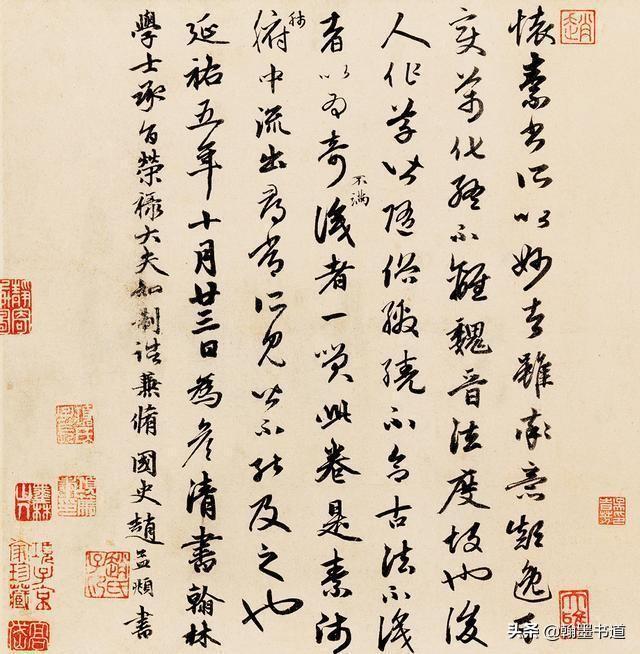 懷素書所以妙者雖率意顛逸千
變萬化終不離魏晉法度故也後
人作草皆隨俗繳繞不合古法不識
者以為奇不滿識者一笑此卷是素師
肺腑中流出尋常所見皆不能及之也
延祐五年十月廿三日為彥清書翰林
學士承旨榮祿大夫知制誥兼脩國史趙孟頫書
趙
大雅
趙氏子昂
項子京家珍藏
头条 @翰墨书道